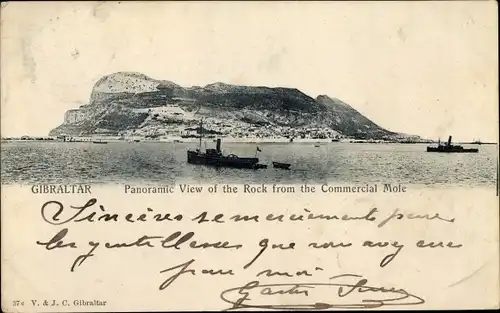 GIBRALTAR
Panoramic View of the Rock from the Commercial Mole
Sincères remerciements pour
les gentillesses que vous avez eues
pour moi
37c V. & J. C. Gibraltar